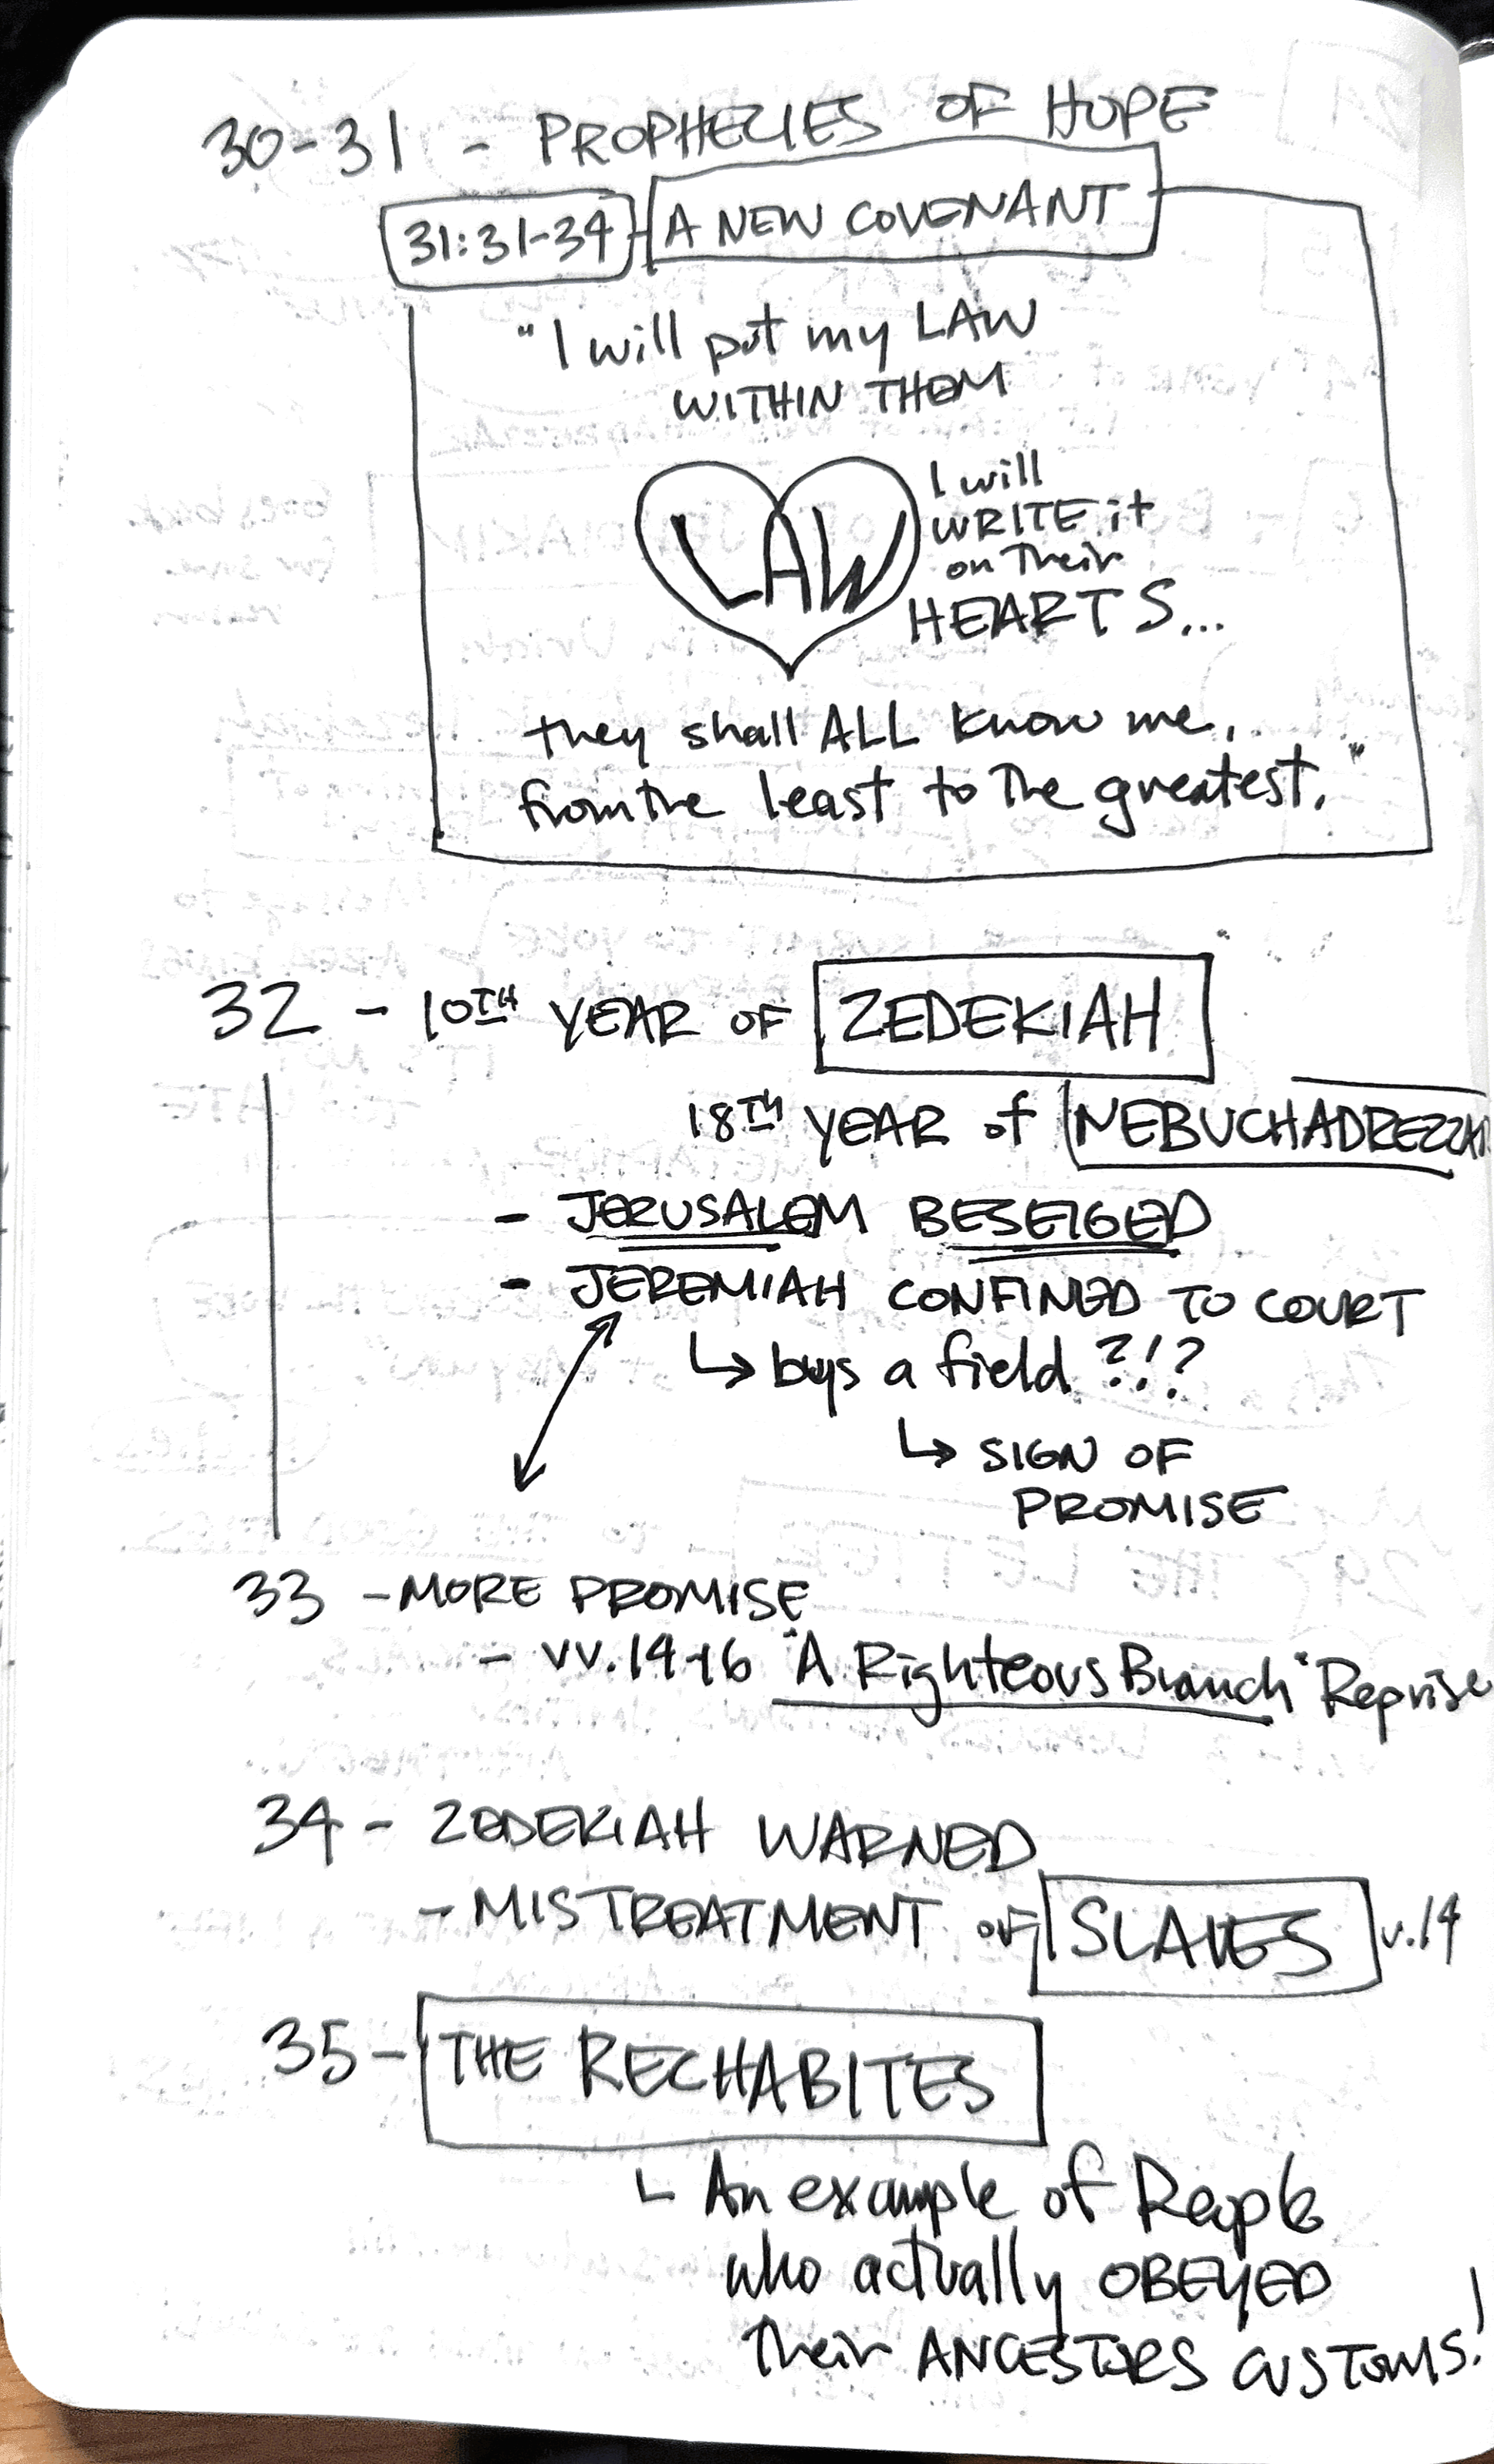 30-31 - PROPHECIES OF HOPE
31:31-34 A NEW COVENANT
"I will put my LAW
WITHIN THEM
LAW
I will
WRITE it
on Their
HEARTS...
they shall ALL know me,
from the least to The greatest."
32 - 10TH YEAR OF ZEDEKIAH
18TH YEAR of NEBUCHADREZZAR
- JERUSALEM BESEIGED
- JEREMIAH CONFINED TO COURT
↳ buys a field ?!?
↳ SIGN OF
PROMISE
33 - MORE PROMISE
- VV. 14-16 "A Righteous Branch" Reprise
34 - ZEDEKIAH WARNED
- MISTREATMENT OF SLAVES v.14
35 - THE RECHABITES
An example of People
who actually OBEYED
Their ANCESTORS CUSTOMS!